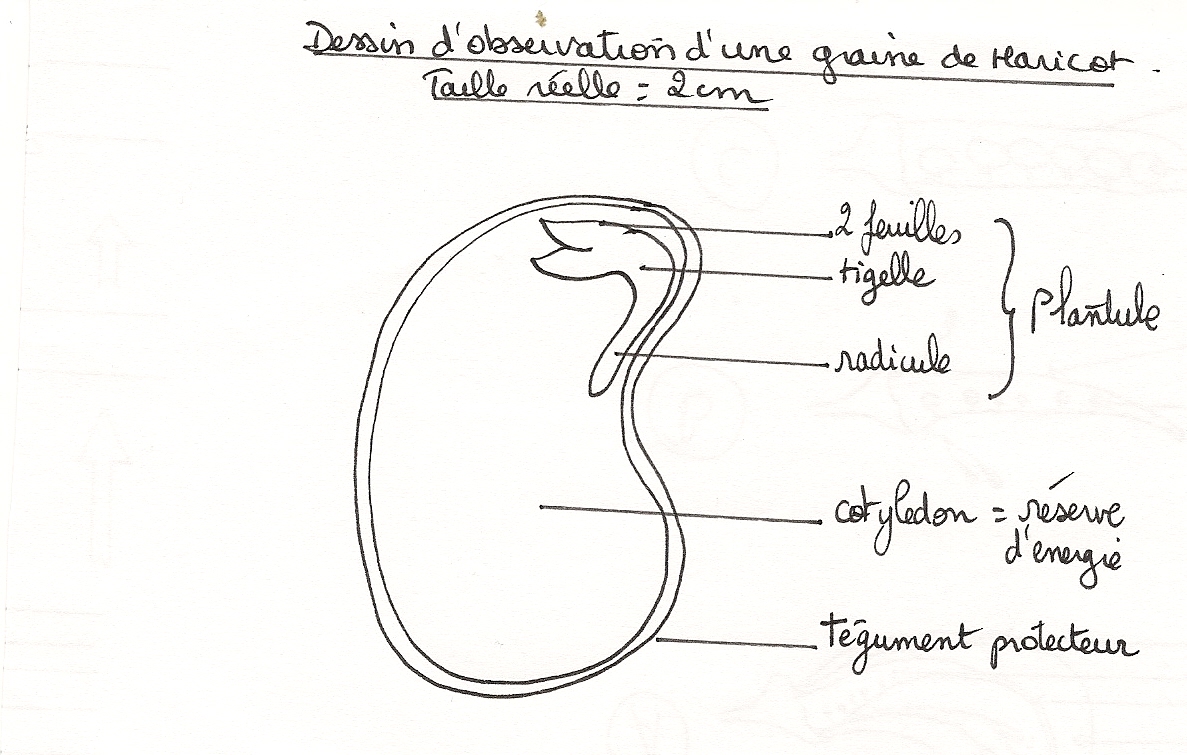 Dessin d'observation d'une graine de Haricot.
Taille réelle = 2cm
2 feuilles
tigelle
plantule
radicule
cotylédon = réserve
d'énergie
tégument protecteur